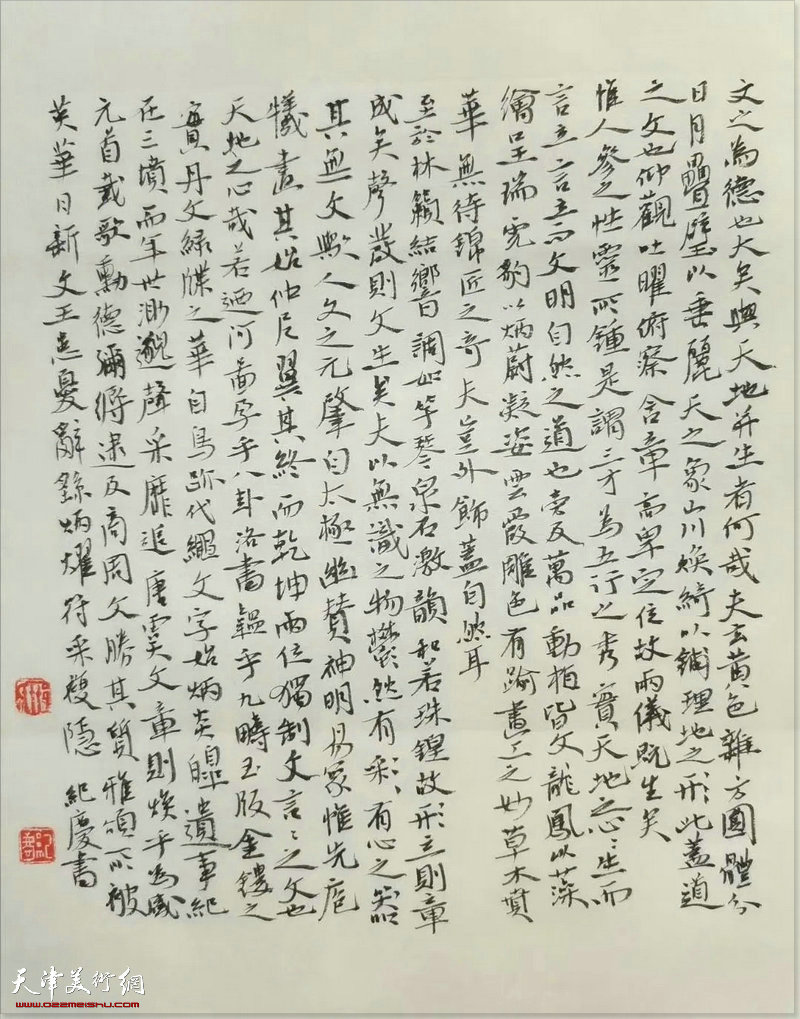 文之為德也大矣與天地并生者何哉夫玄黃色雜方圓體分
日月疊璧以垂麗天之象山川煥綺以鋪理地之形此蓋道
之文也仰觀吐曜俯察含章高卑定位故兩儀既生矣
惟人參之性靈所鍾是謂三才為五行之秀實天地之心〻生而
言立言立而文明自然之道也旁及萬品動植皆文龍鳳以藻
繪呈瑞虎豹以炳蔚凝姿雲霞雕色有踰畫工之妙草木賁
華無待錦匠之奇夫豈外飾蓋自然耳
至於林籟結響調如竽琴泉石激韻和若珠鍠故形立則章
成矣聲發則文生矣夫以無識之物鬱然有彩有心之器
其無文歟人文之元肇自太極幽贊神明易象惟先庖
犧畫其始仲尼翼其終而乾坤兩位獨制文言〻之文也
天地之心哉若迺河圖孕乎八卦洛書韞乎九疇玉版金鏤之
實丹文綠牒之華自鳥跡代繩文字始炳炎皞遺事紀
在三墳而年世渺邈聲采靡追唐虞文章則煥乎為盛
元首載歌勳德彌縟逮及商周文勝其質雅頌所被
英華日新文王患憂辭繇炳燿符采複隱 紀慶書
天津美術網
www.022meishu.com